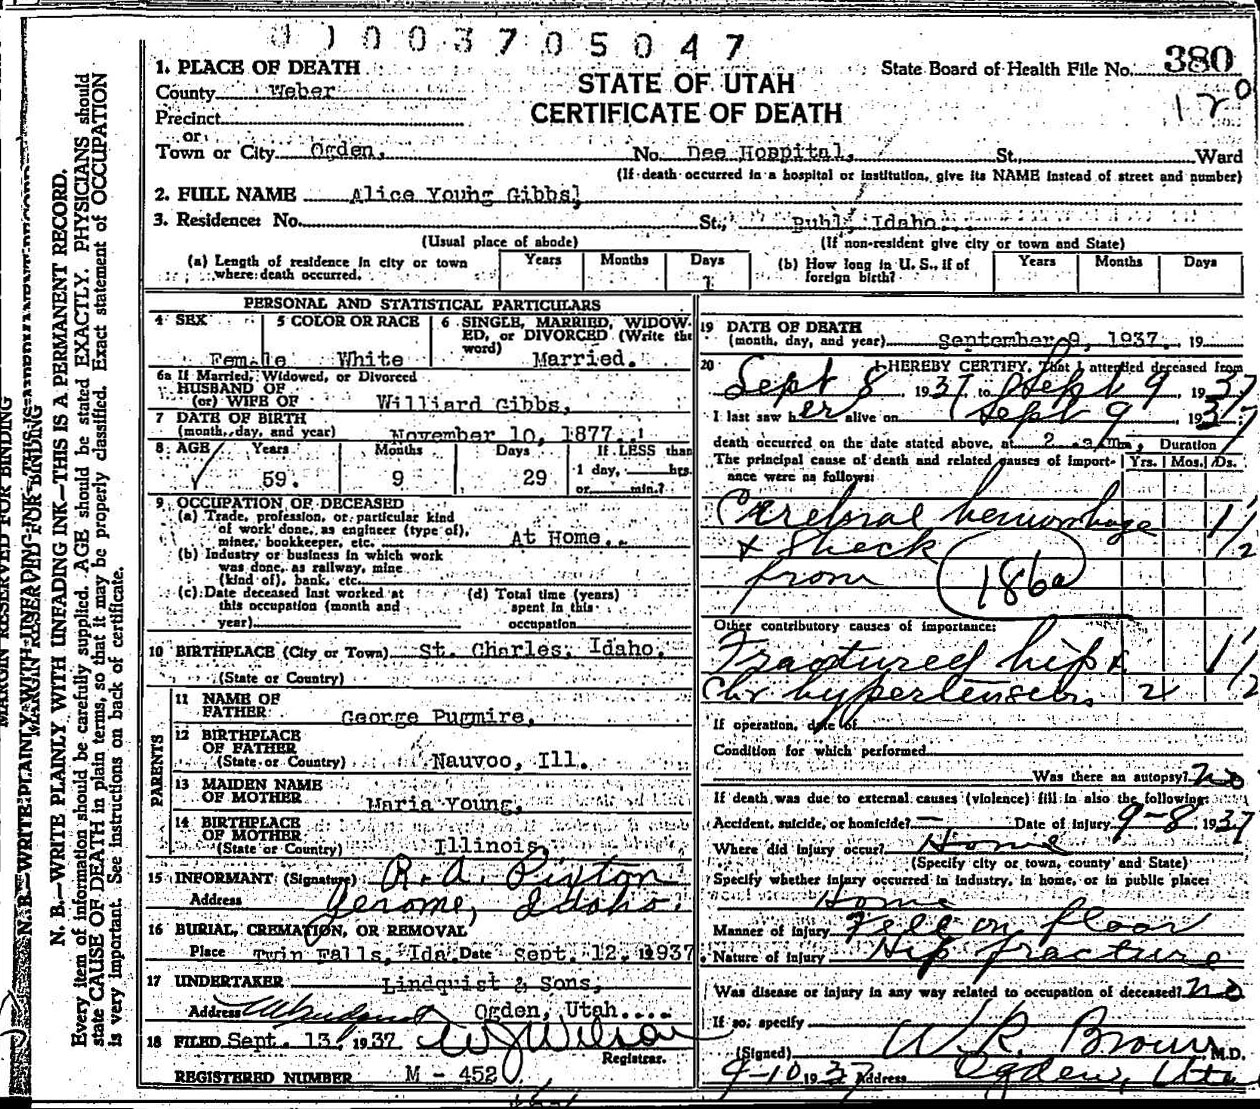 0 1 0 0 3 7 0 5 0 4 7
1. PLACE OF DEATH
STATE OF UTAH
CERTIFICATE OF DEATH
State Board of Health File No. 380
120
County Weber
Precinct
or
Town or City Ogden, No. Dee Hospital, St., Ward
(If death occurred in a hospital or institution, give its NAME instead of street and number)
2. FULL NAME Alice Young Gibbs,
3. Residence: No. St., Buhl, Idaho.
(Usual place of abode) (If non-resident give city or town and State)
(a) Length of residence in city or town where death occurred. Years Months Days 1
(b) How long in U. S., if of foreign birth? Years Months Days
PERSONAL AND STATISTICAL PARTICULARS
4 SEX Female
5 COLOR OR RACE White
6 SINGLE, MARRIED, WIDOWED, or DIVORCED (Write the word) Married.
6a If Married, Widowed, or Divorced
HUSBAND OF
(or) WIFE OF Williard Gibbs,
7 DATE OF BIRTH
(month, day, and year) November 10, 1877.
8 AGE Years Months Days If LESS than
59. 9 29 1 day, hrs.
or min.?
9 OCCUPATION OF DECEASED
(a) Trade, profession, or particular kind
of work done, as engineer (type of),
miner, bookkeeper, etc. At Home.
(b) Industry or business in which work
was done, as railway, mine
(kind of), bank, etc.
(c) Date deceased last worked at
this occupation (month and
year)
(d) Total time (years)
spent in this
occupation
10 BIRTHPLACE (City or Town) St. Charles, Idaho.
(State or Country)
PARENTS
11 NAME OF
FATHER George Pugmire,
12 BIRTHPLACE
OF FATHER
(State or Country) Nauvoo, Ill.
13 MAIDEN NAME
OF MOTHER Maria Young,
14 BIRTHPLACE
OF MOTHER
(State or Country) Illinois,
15 INFORMANT (Signature) R. A. Pixton
Address Jerome, Idaho.
16 BURIAL, CREMATION, OR REMOVAL
Place Twin Falls, Ida. Date Sept. 12. 1937
17 UNDERTAKER Lindquist & Sons,
Address Ogden, Utah....
18 FILED Sept. 13, 1937 W J Wilson
Registrar.
REGISTERED NUMBER M - 452
19 DATE OF DEATH
(month, day, and year) September 9, 1937. 19
20 I HEREBY CERTIFY, That I attended deceased from
Sept 8 1937, to Sept 9, 1937
I last saw her alive on Sept 9, 1937
death occurred on the date stated above, at 2 a m., Duration
The principal cause of death and related causes of importance were as follows: Yrs. Mos. Ds.
Cerebral hemorrhage 1 1/2
+ Shock
from 186a
Other contributory causes of importance:
Fractured hip + 1 1/2
Chr hypertension 2
If operation, date of
Condition for which performed
Was there an autopsy? no
If death was due to external causes (violence) fill in also the following:
Accident, suicide, or homicide? — Date of injury 9-8, 1937
Where did injury occur? Home
(Specify city or town, county and State)
Specify whether injury occurred in industry, in home, or in public place:
Home
Manner of injury Fell on floor
Nature of injury Hip fracture
Was disease or injury in any way related to occupation of deceased? no
If so, specify
(Signed) W. R. Brown M.D.
9-10 1937 Address Ogden, Utah
MARGIN RESERVED FOR BINDING
N. B.—WRITE PLAINLY WITH UNFADING INK—THIS IS A PERMANENT RECORD.
Every item of information should be carefully supplied. AGE should be stated EXACTLY. PHYSICIANS should
state CAUSE OF DEATH in plain terms, so that it may be properly classified. Exact statement of OCCUPATION
is very important. See instructions on back of certificate.